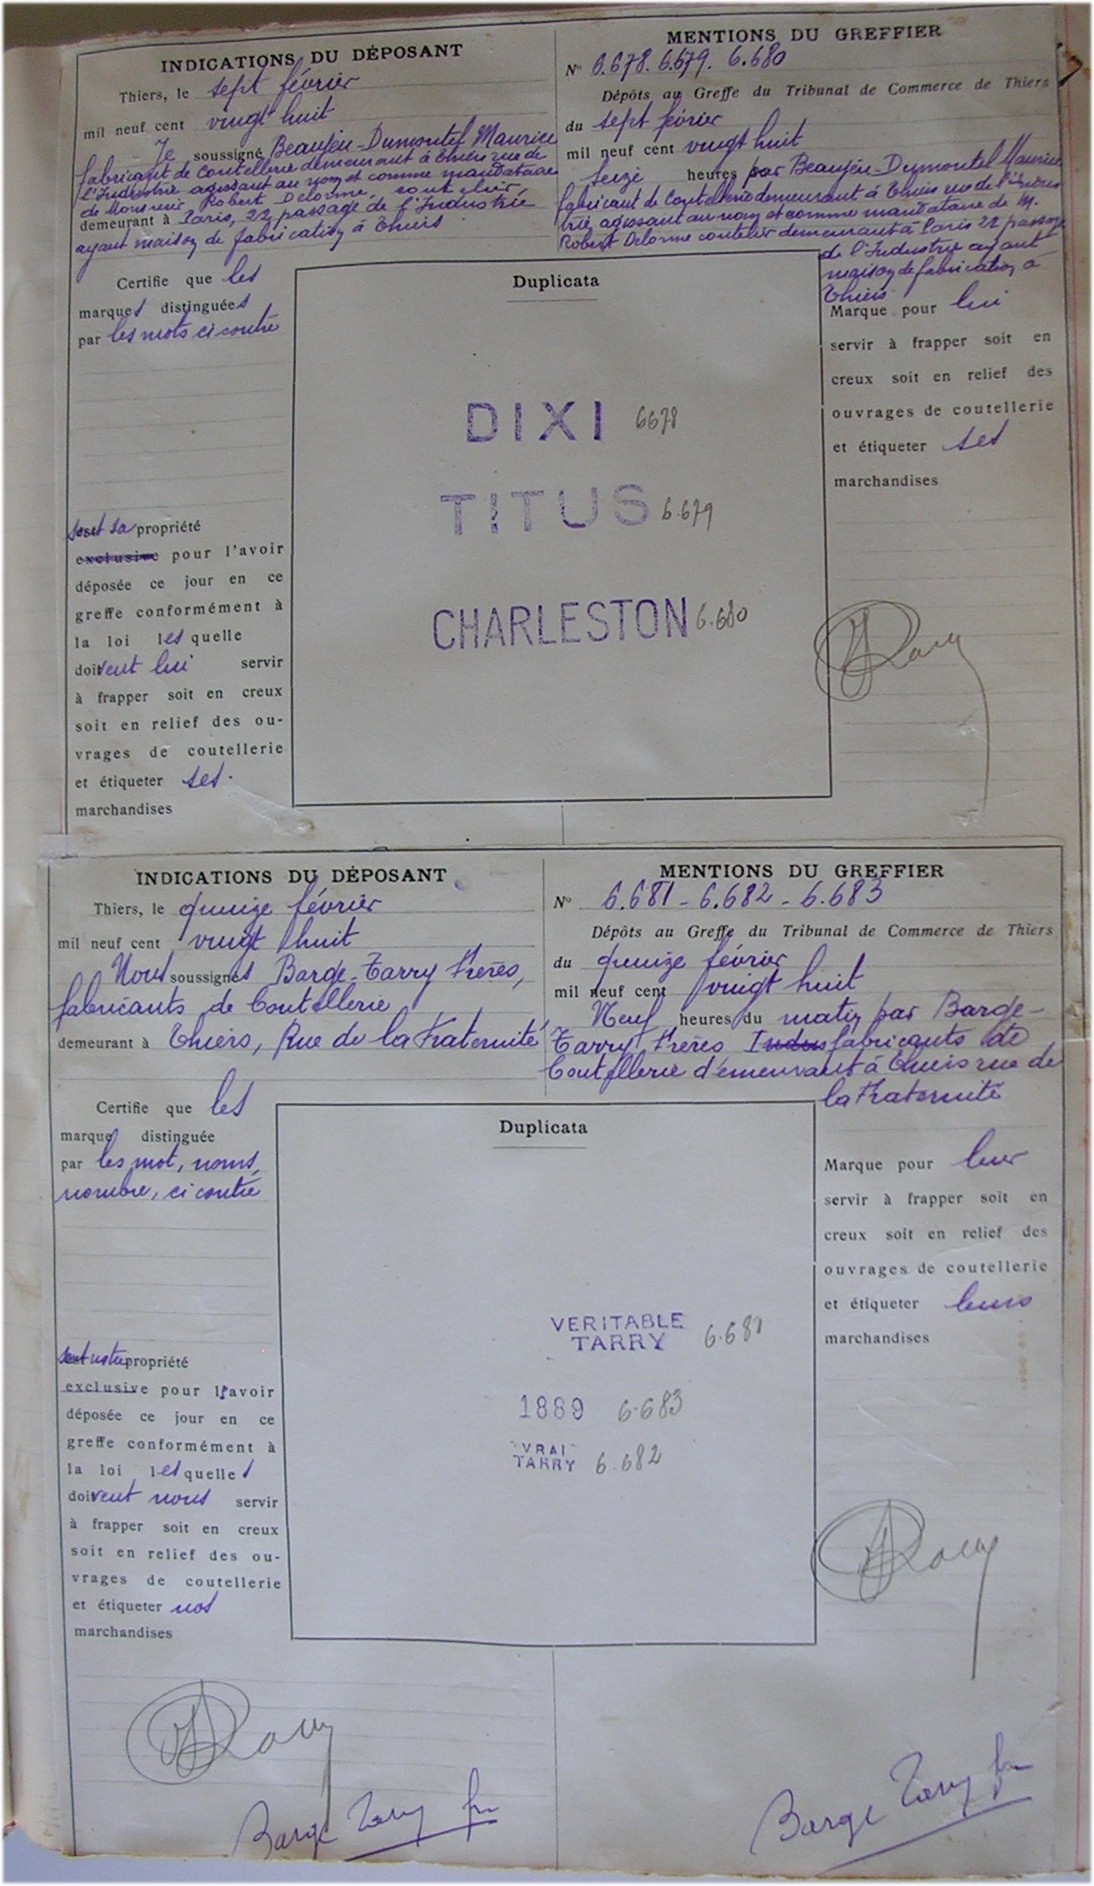 INDICATIONS DU DÉPOSANT
Thiers, le sept février
mil neuf cent vingt huit
Je soussigné Beaujeu-Dumontel Maurice
fabricant de Coutellerie demeurant à Thiers rue de
l'Industrie agissant au nom et comme mandataire
de Monsieur Robert Delorme, coutelier,
demeurant à Paris, 22 passage de l'Industrie
ayant maison de fabrication à Thiers
Certifie que les
marques distinguées
par les mots ci contre
sont sa propriété
exclusive pour l'avoir
déposée ce jour en ce
greffe conformément à
la loi lesquelle
doivent lui servir
à frapper soit en creux
soit en relief des ou-
vrages de coutellerie
et étiqueter ses.
marchandises
Duplicata
DIXI 6678
TITUS 6.679
CHARLESTON 6.680
MENTIONS DU GREFFIER
N° 6.678. 6.679. 6.680
Dépôts au Greffe du Tribunal de Commerce de Thiers
du sept février
mil neuf cent vingt huit
seize heures par Beaujeu-Dumontel Maurice
fabricant de Coutellerie demeurant à Thiers rue de l'Indus
trie agissant au nom et comme mandataire de M.
Robert Delorme coutelier demeurant à Paris 22 passage
de l'Industrie ayant
maison de fabrication à
Thiers
Marque pour lui
servir à frapper soit en
creux soit en relief des
ouvrages de coutellerie
et étiqueter ses
marchandises
INDICATIONS DU DÉPOSANT
Thiers, le quinze février
mil neuf cent vingt huit
Nous soussignés Barge-Tarry Frères,
fabricants de Coutellerie
demeurant à Thiers, Rue de la Fraternité
Certifie que les
marque distinguée
par les mot, noms,
nombre, ci contre
sont notre propriété
exclusive pour l'avoir
déposée ce jour en ce
greffe conformément à
la loi lesquelles
doivent nous servir
à frapper soit en creux
soit en relief des ou-
vrages de coutellerie
et étiqueter nos
marchandises
Duplicata
VERITABLE
TARRY 6.681
1889 6.683
VRAI
TARRY 6.682
MENTIONS DU GREFFIER
N° 6.681 - 6.682 - 6.683
Dépôts au Greffe du Tribunal de Commerce de Thiers
du quinze février
mil neuf cent vingt huit
Neuf heures du matin par Barge-
Tarry Frères Indus fabricants de
Coutellerie demeurant à Thiers rue de
la Fraternité
Marque pour leur
servir à frapper soit en
creux soit en relief des
ouvrages de coutellerie
et étiqueter leurs
marchandises
Barge Tarry fres
Barge Tarry fres